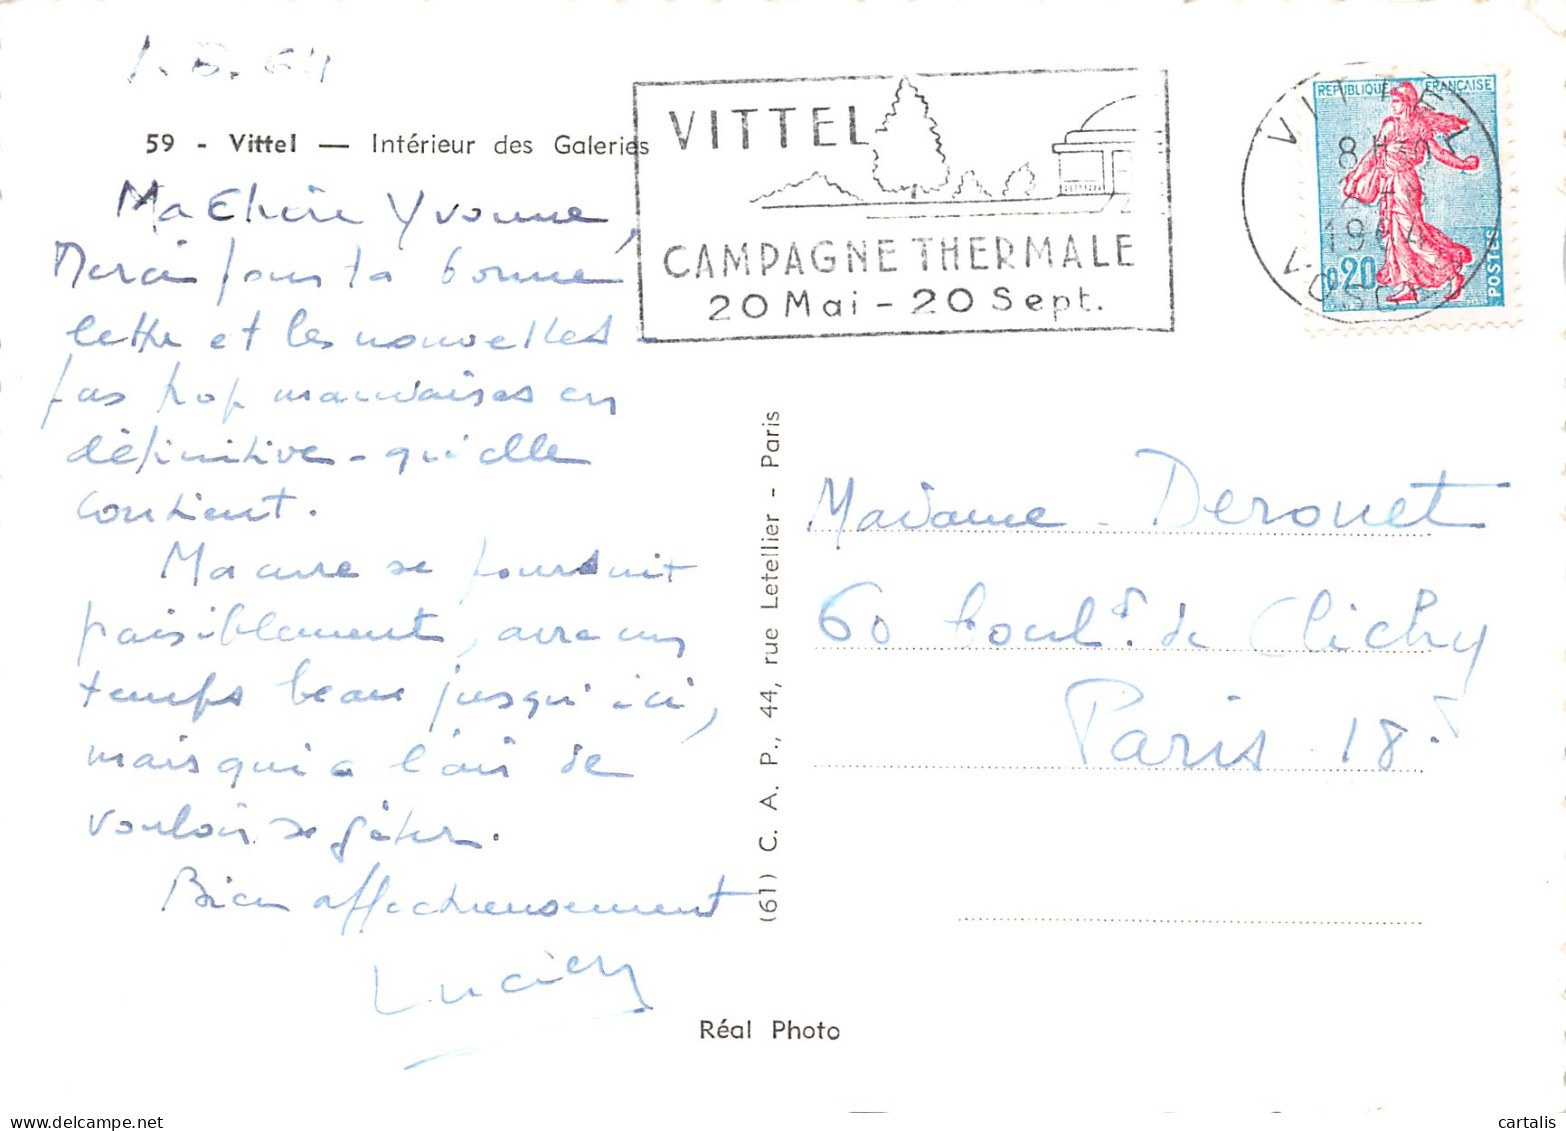 1.8.64
59 - Vittel — Intérieur des Galeries
Ma Chère Yvonne,
Merci pour ta bonne
lettre et les nouvelles -
pas trop mauvaises en
définitive - qu'elle
contient.
Ma cure se poursuit
paisiblement, avec un
temps beau jusqu'ici,
mais qui a l'air de
vouloir se gâter.
Bien affectueusement
Lucien
VITTEL
CAMPAGNE THERMALE
20 Mai - 20 Sept.
VITTEL
8H
1964
VOSGES
REPUBLIQUE FRANÇAISE
0,20
POSTES
(61) C. A. P., 44, rue Letellier - Paris
Madame Derouet
60 boul.d de Clichy
Paris 18.e
Réal Photo
cartalis